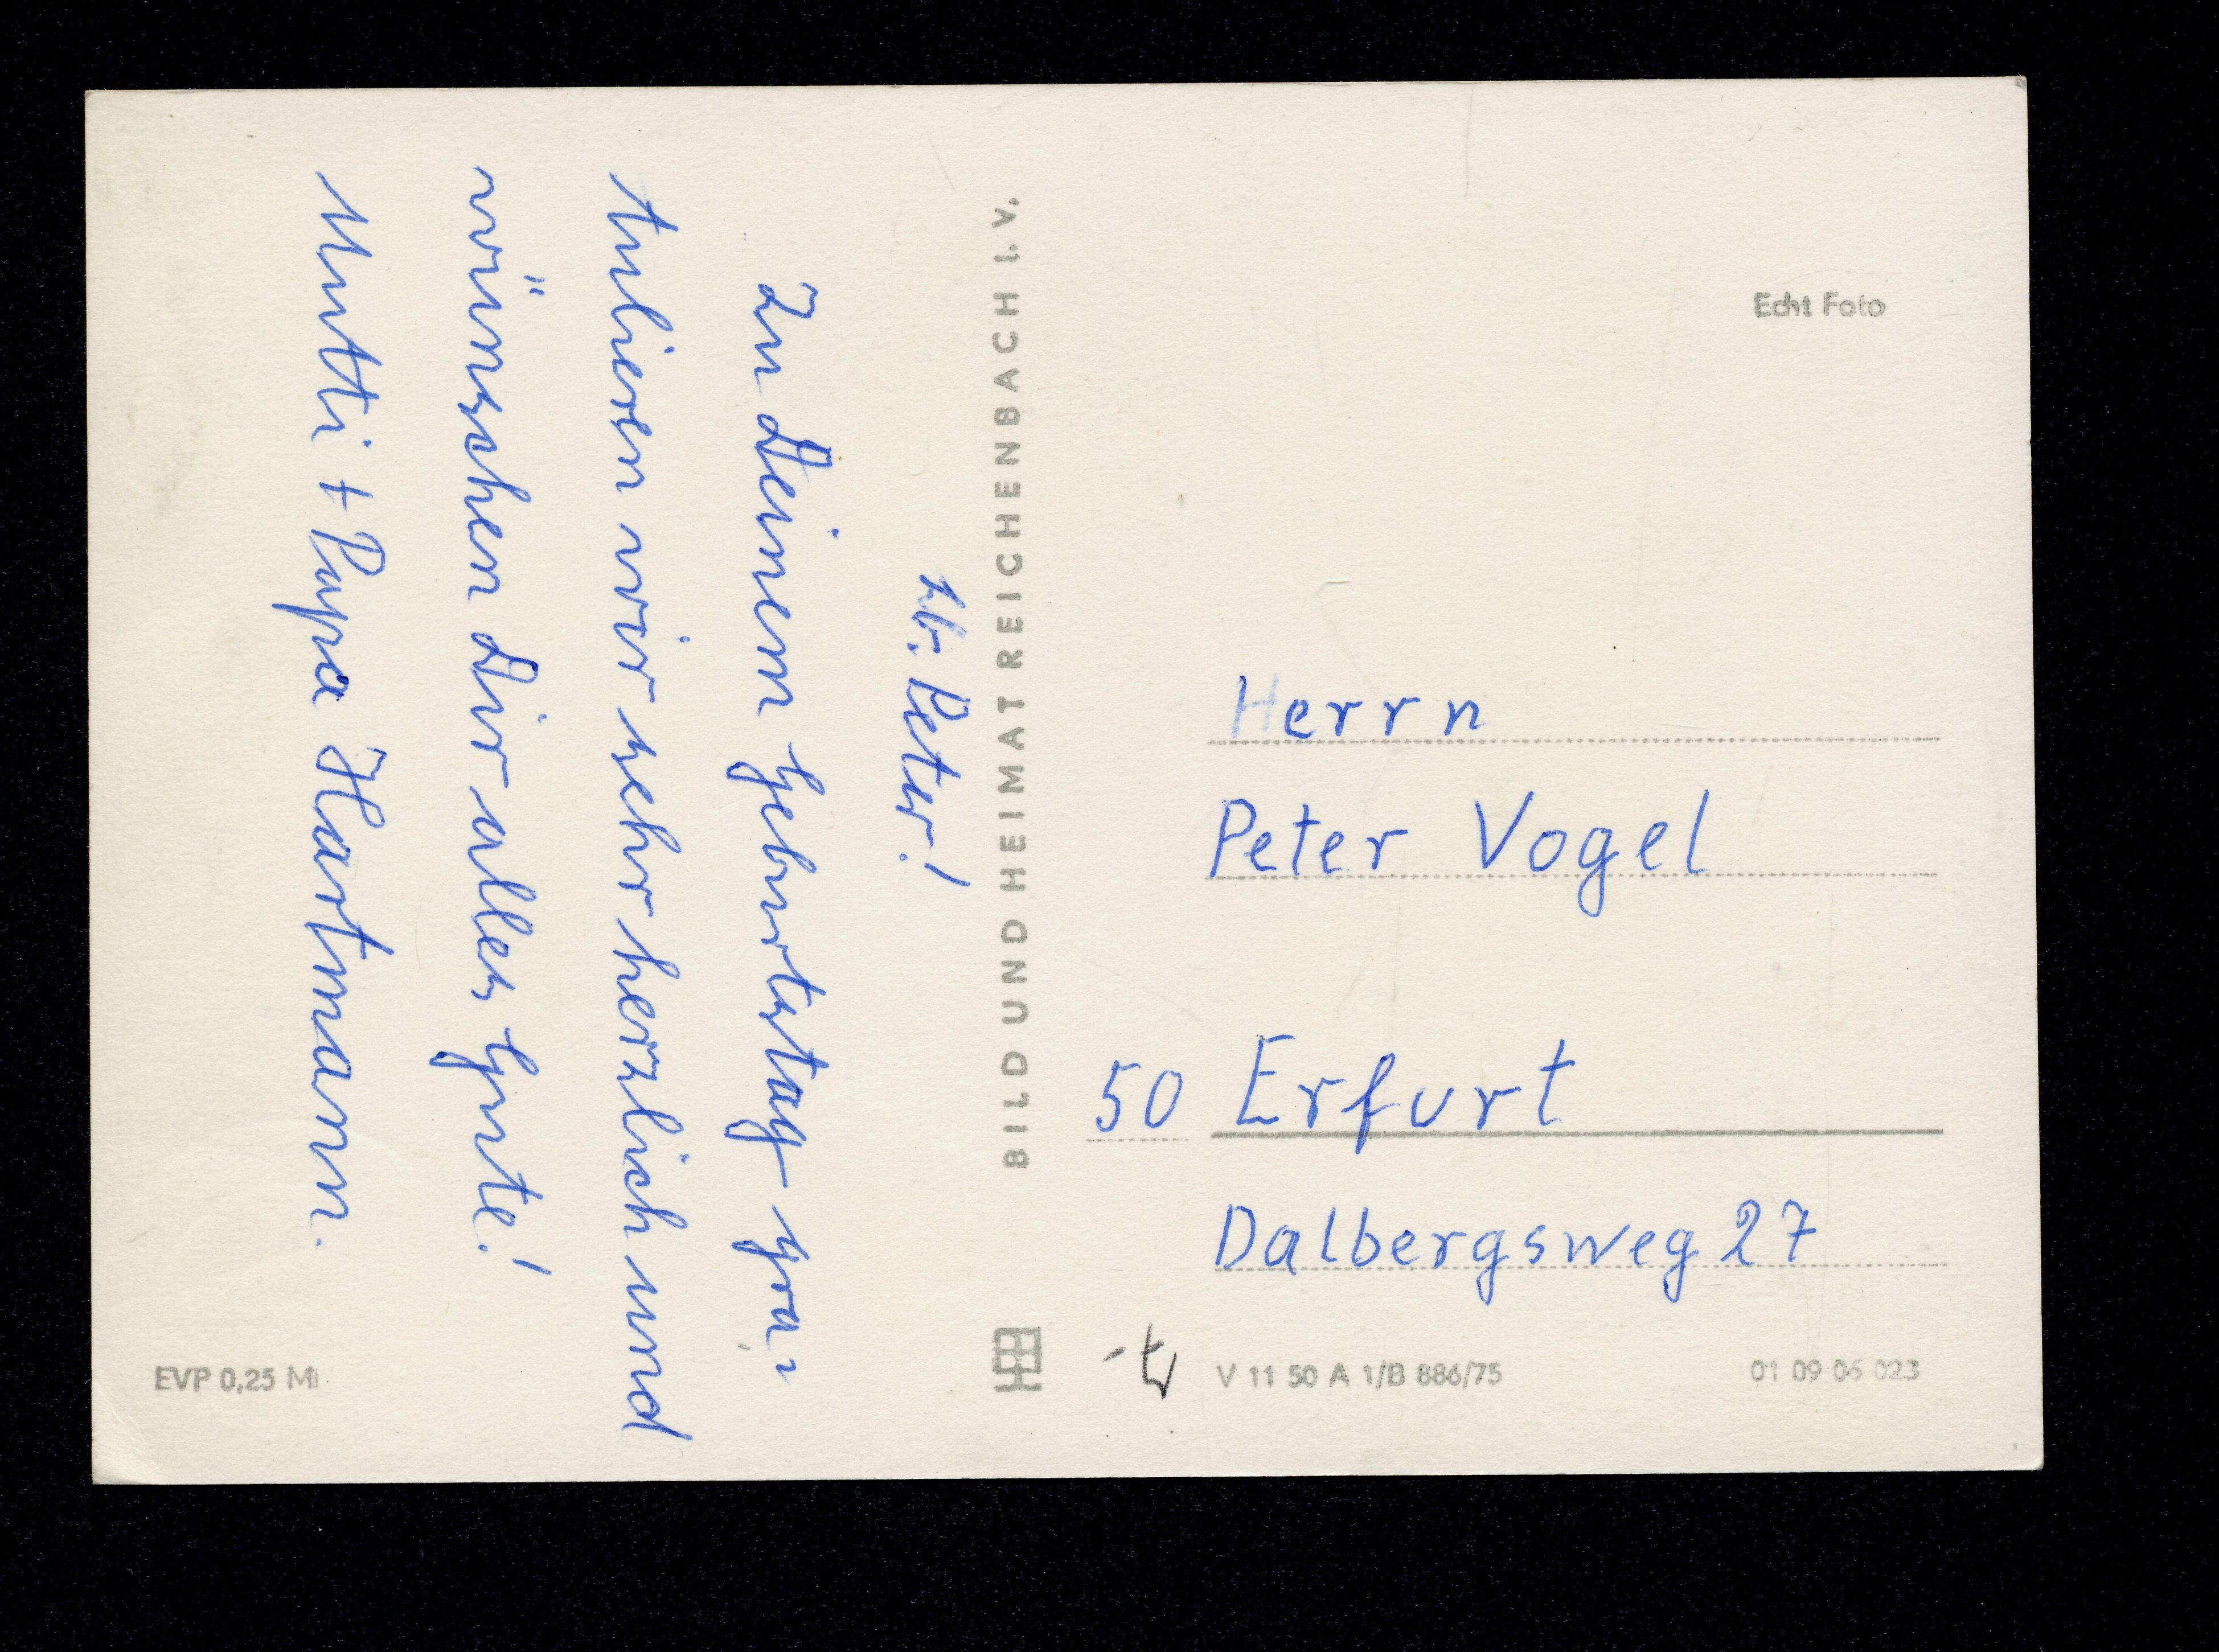 lb. Peter!
Zu Deinem Geburtstag gra=
tulieren wir sehr herzlich und
wünschen Dir alles Gute!
Mutti + Papa Hartmann.
BILD UND HEIMAT REICHENBACH I. V.
Echt Foto
Herrn
Peter Vogel
50 Erfurt
Dalbergsweg 27
EVP 0,25 M
V 11 50 A 1/B 886/75
01 09 06 023